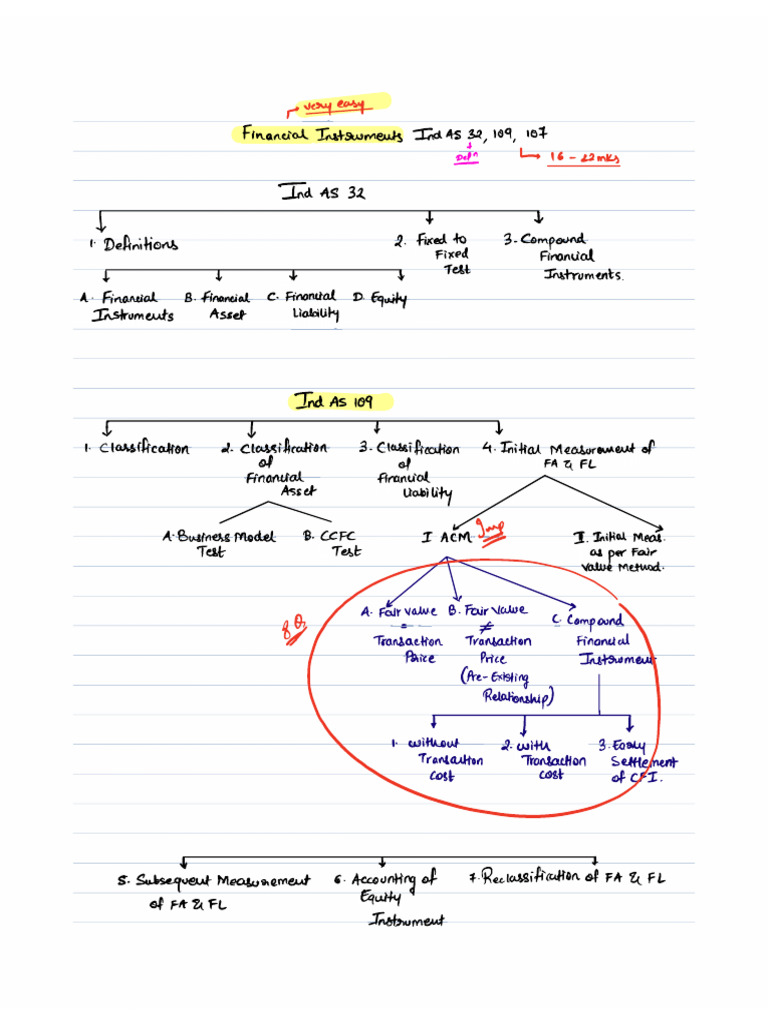 very easy
Financial Instruments Ind AS 32, 109, 107
Defn
16 - 22 mks
Ind AS 32
1. Definitions
2. Fixed to
Fixed
Test
3. Compound
Financial
Instruments.
A. Financial
Instruments
B. Financial
Asset
C. Financial
Liability
D. Equity
Ind AS 109
1. Classification
2. Classification
of
Financial
Asset
3. Classification
of
Financial
Liability
4. Initial Measurement of
FA & FL
A. Business Model
Test
B. CCFC
Test
I ACM
Imp
II. Initial Meas.
as per Fair
Value Method.
8 Q.
A. Fair value
=
Transaction
Price
B. Fair value
≠
Transaction
Price
(Pre-Existing
Relationship)
C. Compound
Financial
Instrument
1. without
Transaction
cost
2. with
Transaction
cost
3. Early
Settlement
of CFI.
5. Subsequent Measurement
of FA & FL
6. Accounting of
Equity
Instrument
7. Reclassification of FA & FL